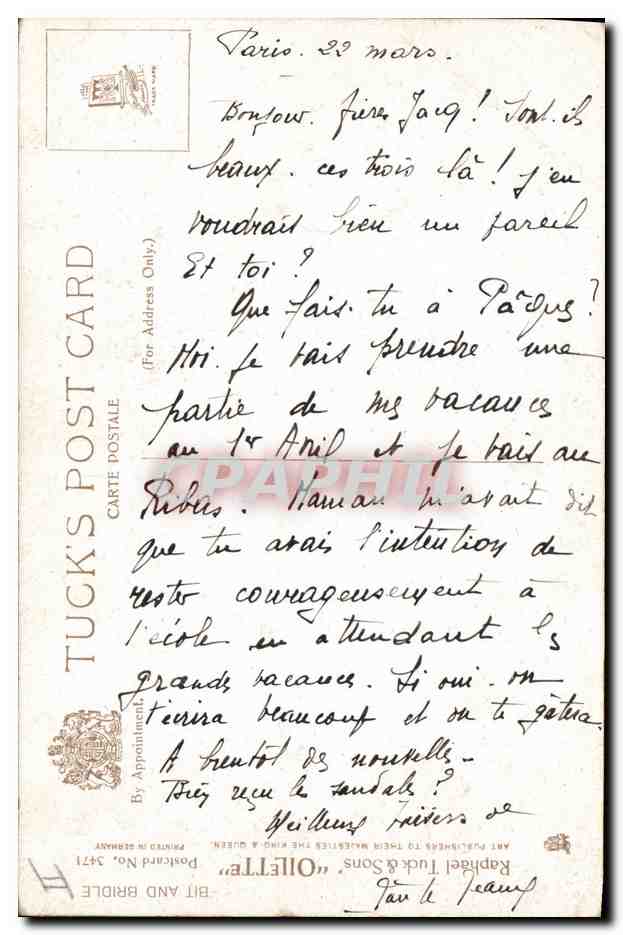 Paris. 22 mars.
Bonjour. frères Jacq! Sont-ils
beaux. ces trois là! J'en
voudrais bien un pareil
Et toi?
Que fais-tu à Pâques?
Moi je vais prendre une
partie de mes vacances
au 1er Avril et je vais au
Ribas. Maman m'avait dit
que tu avais l'intention de
rester courageusement à
l'école en attendant les
grandes vacances. Si oui. on
t'écrira beaucoup et on te gâtera.
A bientôt des nouvelles-
Bien reçu les sandales?
Meilleurs baisers de
Tante
TUCK'S POST CARD
CARTE POSTALE
(For Address Only.)
By Appointment.
TRADE MARK
CPAPHIL
BIT AND BRIDLE
Raphael Tuck & Sons' "OILETTE"
Postcard No. 3471
ART PUBLISHERS TO THEIR MAJESTIES THE KING & QUEEN.
PRINTED IN GERMANY
II